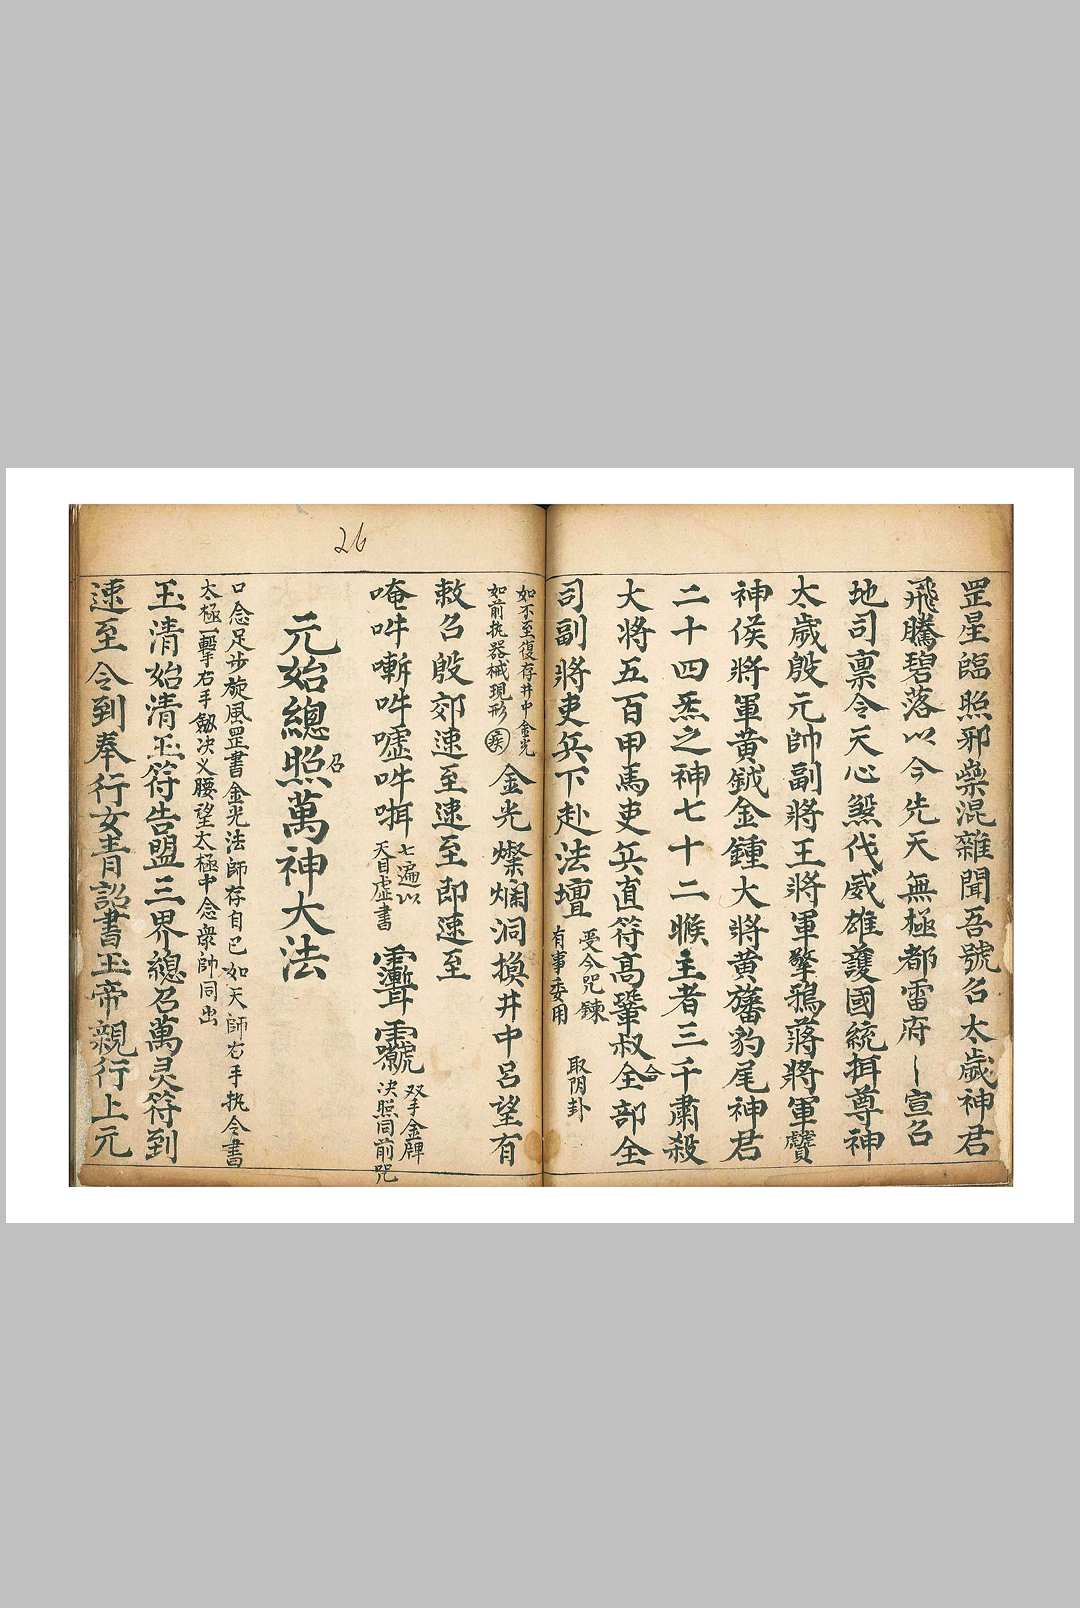 罡星臨照邪祟混雜聞吾號召太歲神君
飛騰碧落以今先天無極都雷府宣召
地司禀令天心煞伐威雄護國統揖尊神
太歲殷元帥副將王將軍擎鴉蔣將軍
神侯將軍黄鉞金鍾大將黄旛豹尾神君
二十四炁之神七十二候主者三千肅殺
大將五百甲馬吏兵直符高鞏叔全部全
司副將吏兵下赴法壇
受今咒錬
有事委用
取阴卦
如不至復存井中金光
如前执器械現形
疾
金光燦爛洞损井中吕望有
敕召殷郊速至速至即速至
唵吽嘶吽嘘吽咡
七遍以
天目虚書
双手金牌
决照同前咒
26
元始總照萬神大法
召
口念足步旋風罡書金光法師存自己如天師右手执令書
太極一擊右手劔决乂腰望太極中念衆帥同出
玉清始清玉符告盟三界總召萬灵符到
速至令到奉行女青詔書玉帝親行上元